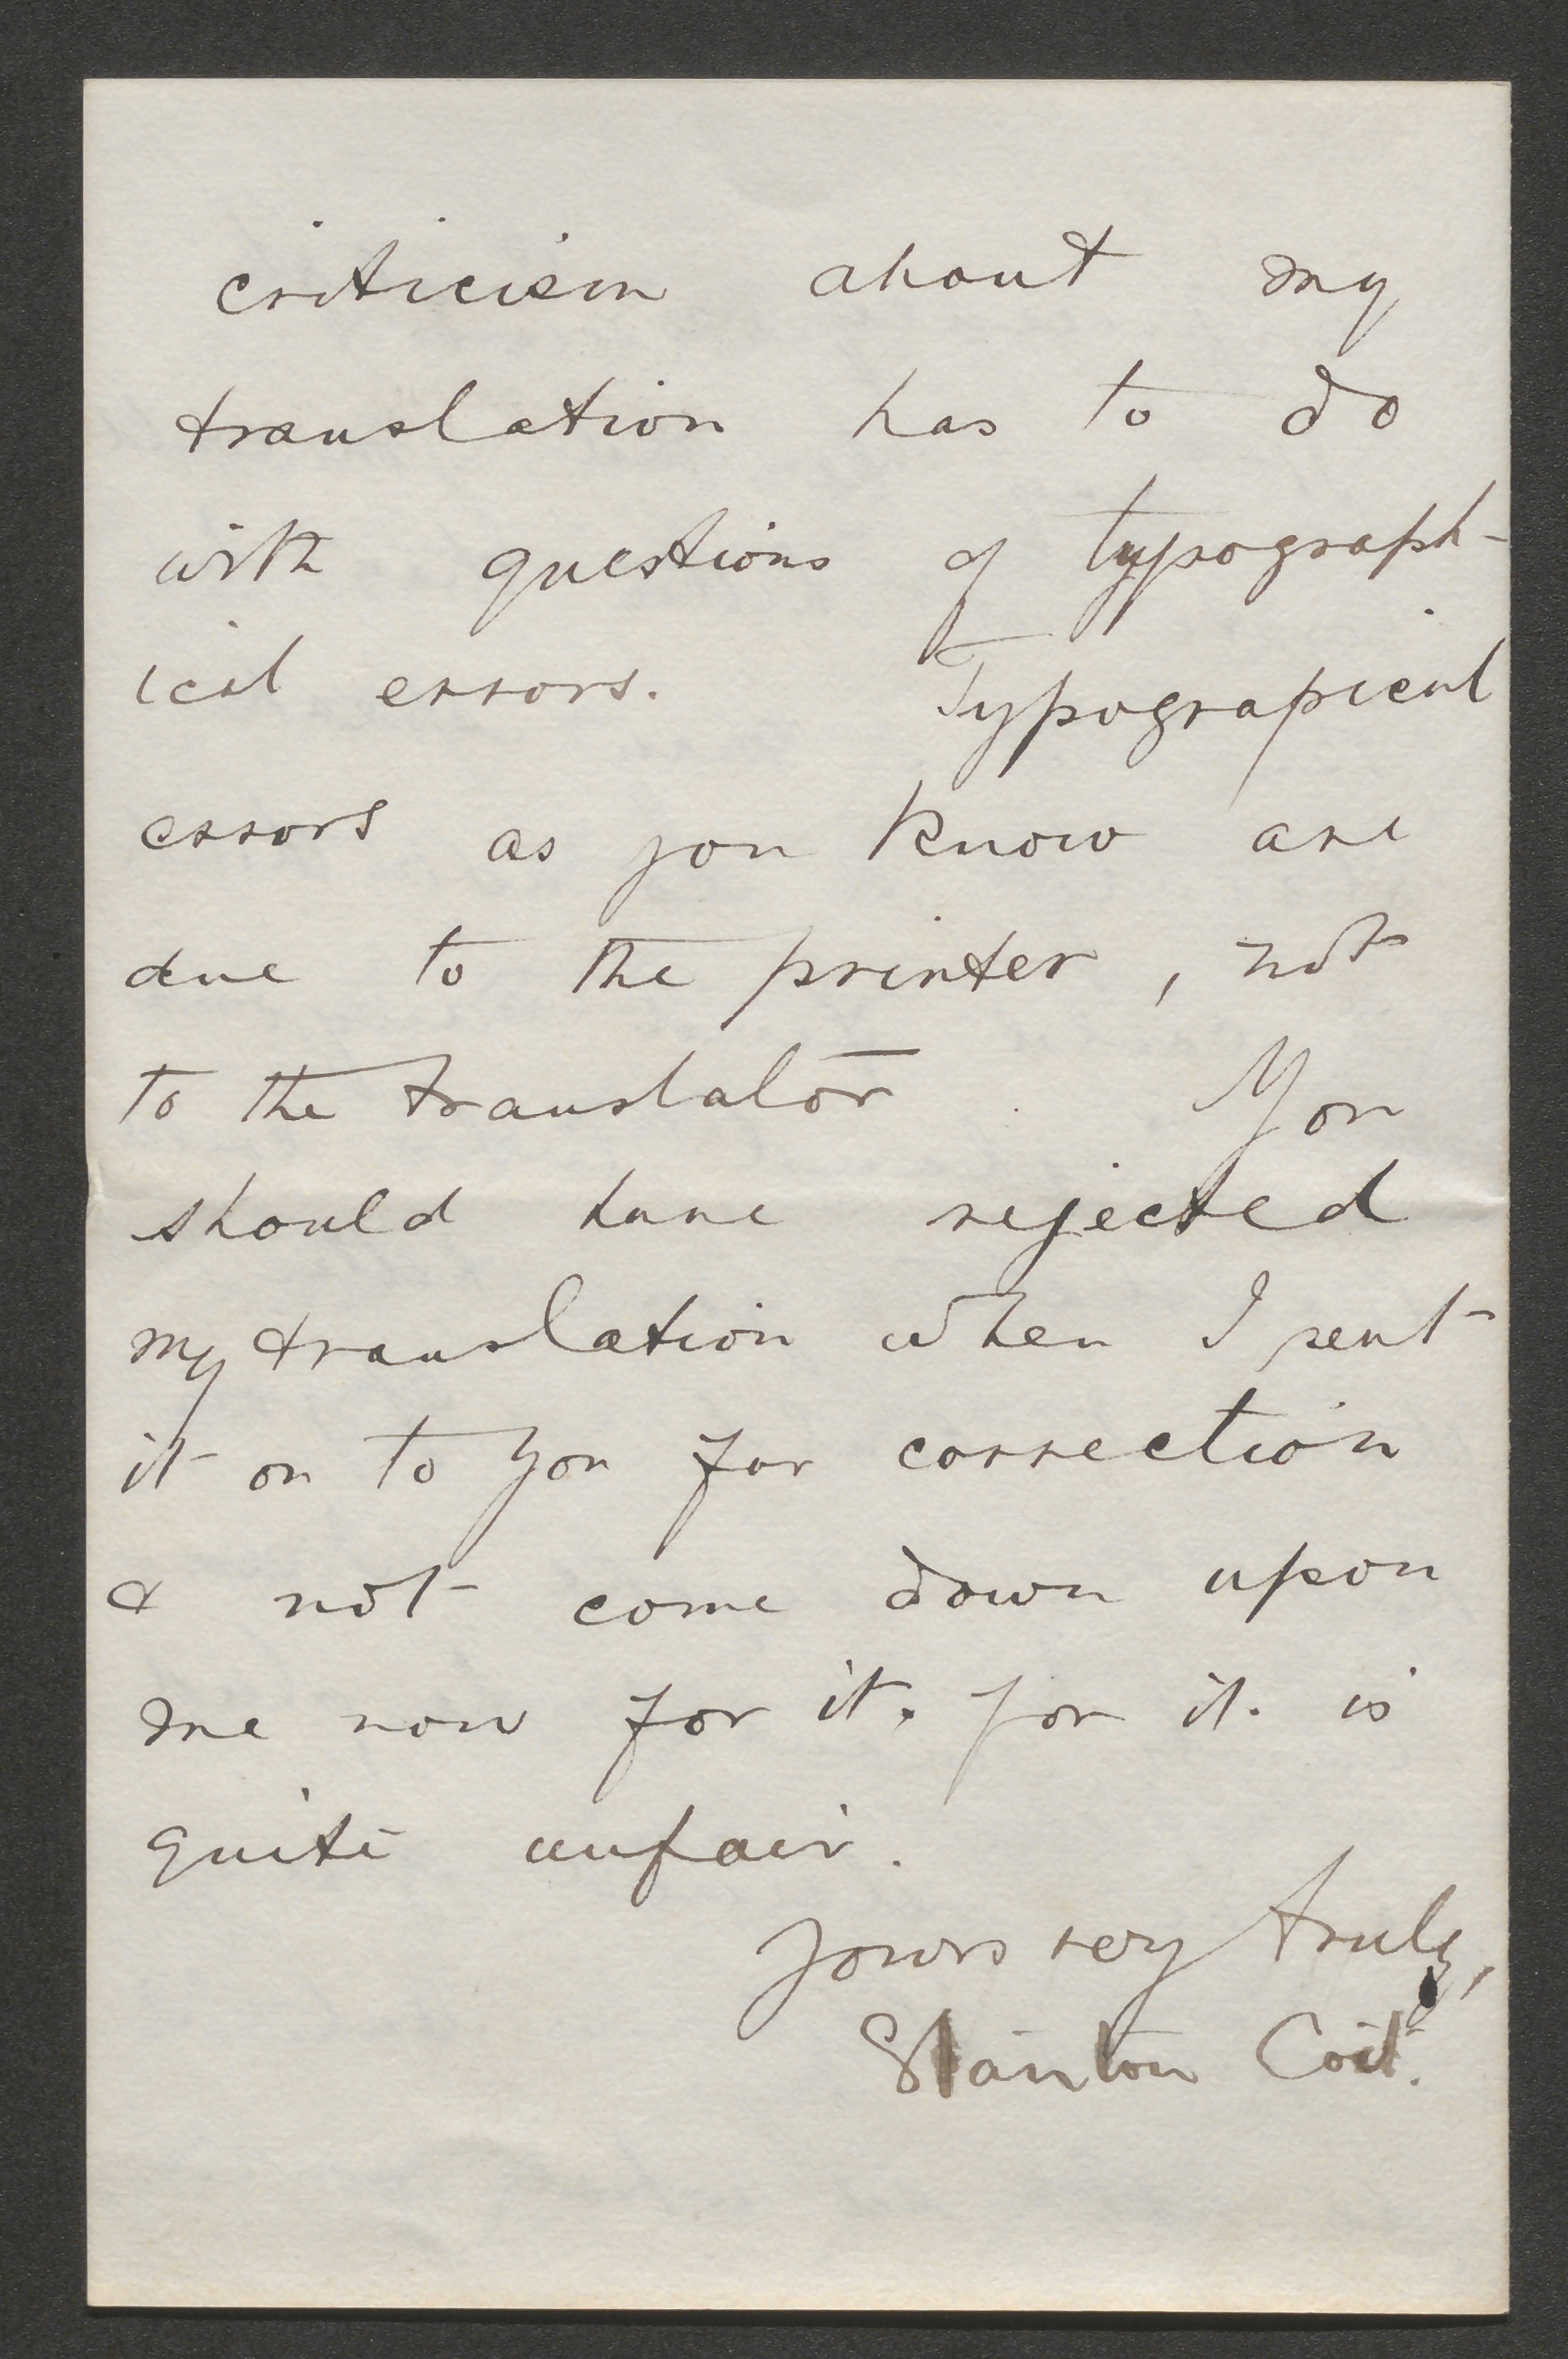 criticism about my
translation has to do
with questions of typograph-
ical errors. Typograpical
errors as you know are
due to the printer, not
to the translator. You
should have rejected
my translation when I sent
it on to you for correction
& not come down upon
me now for it. for it. is
quite unfair.
Yours very truly,
Stanton Coit.